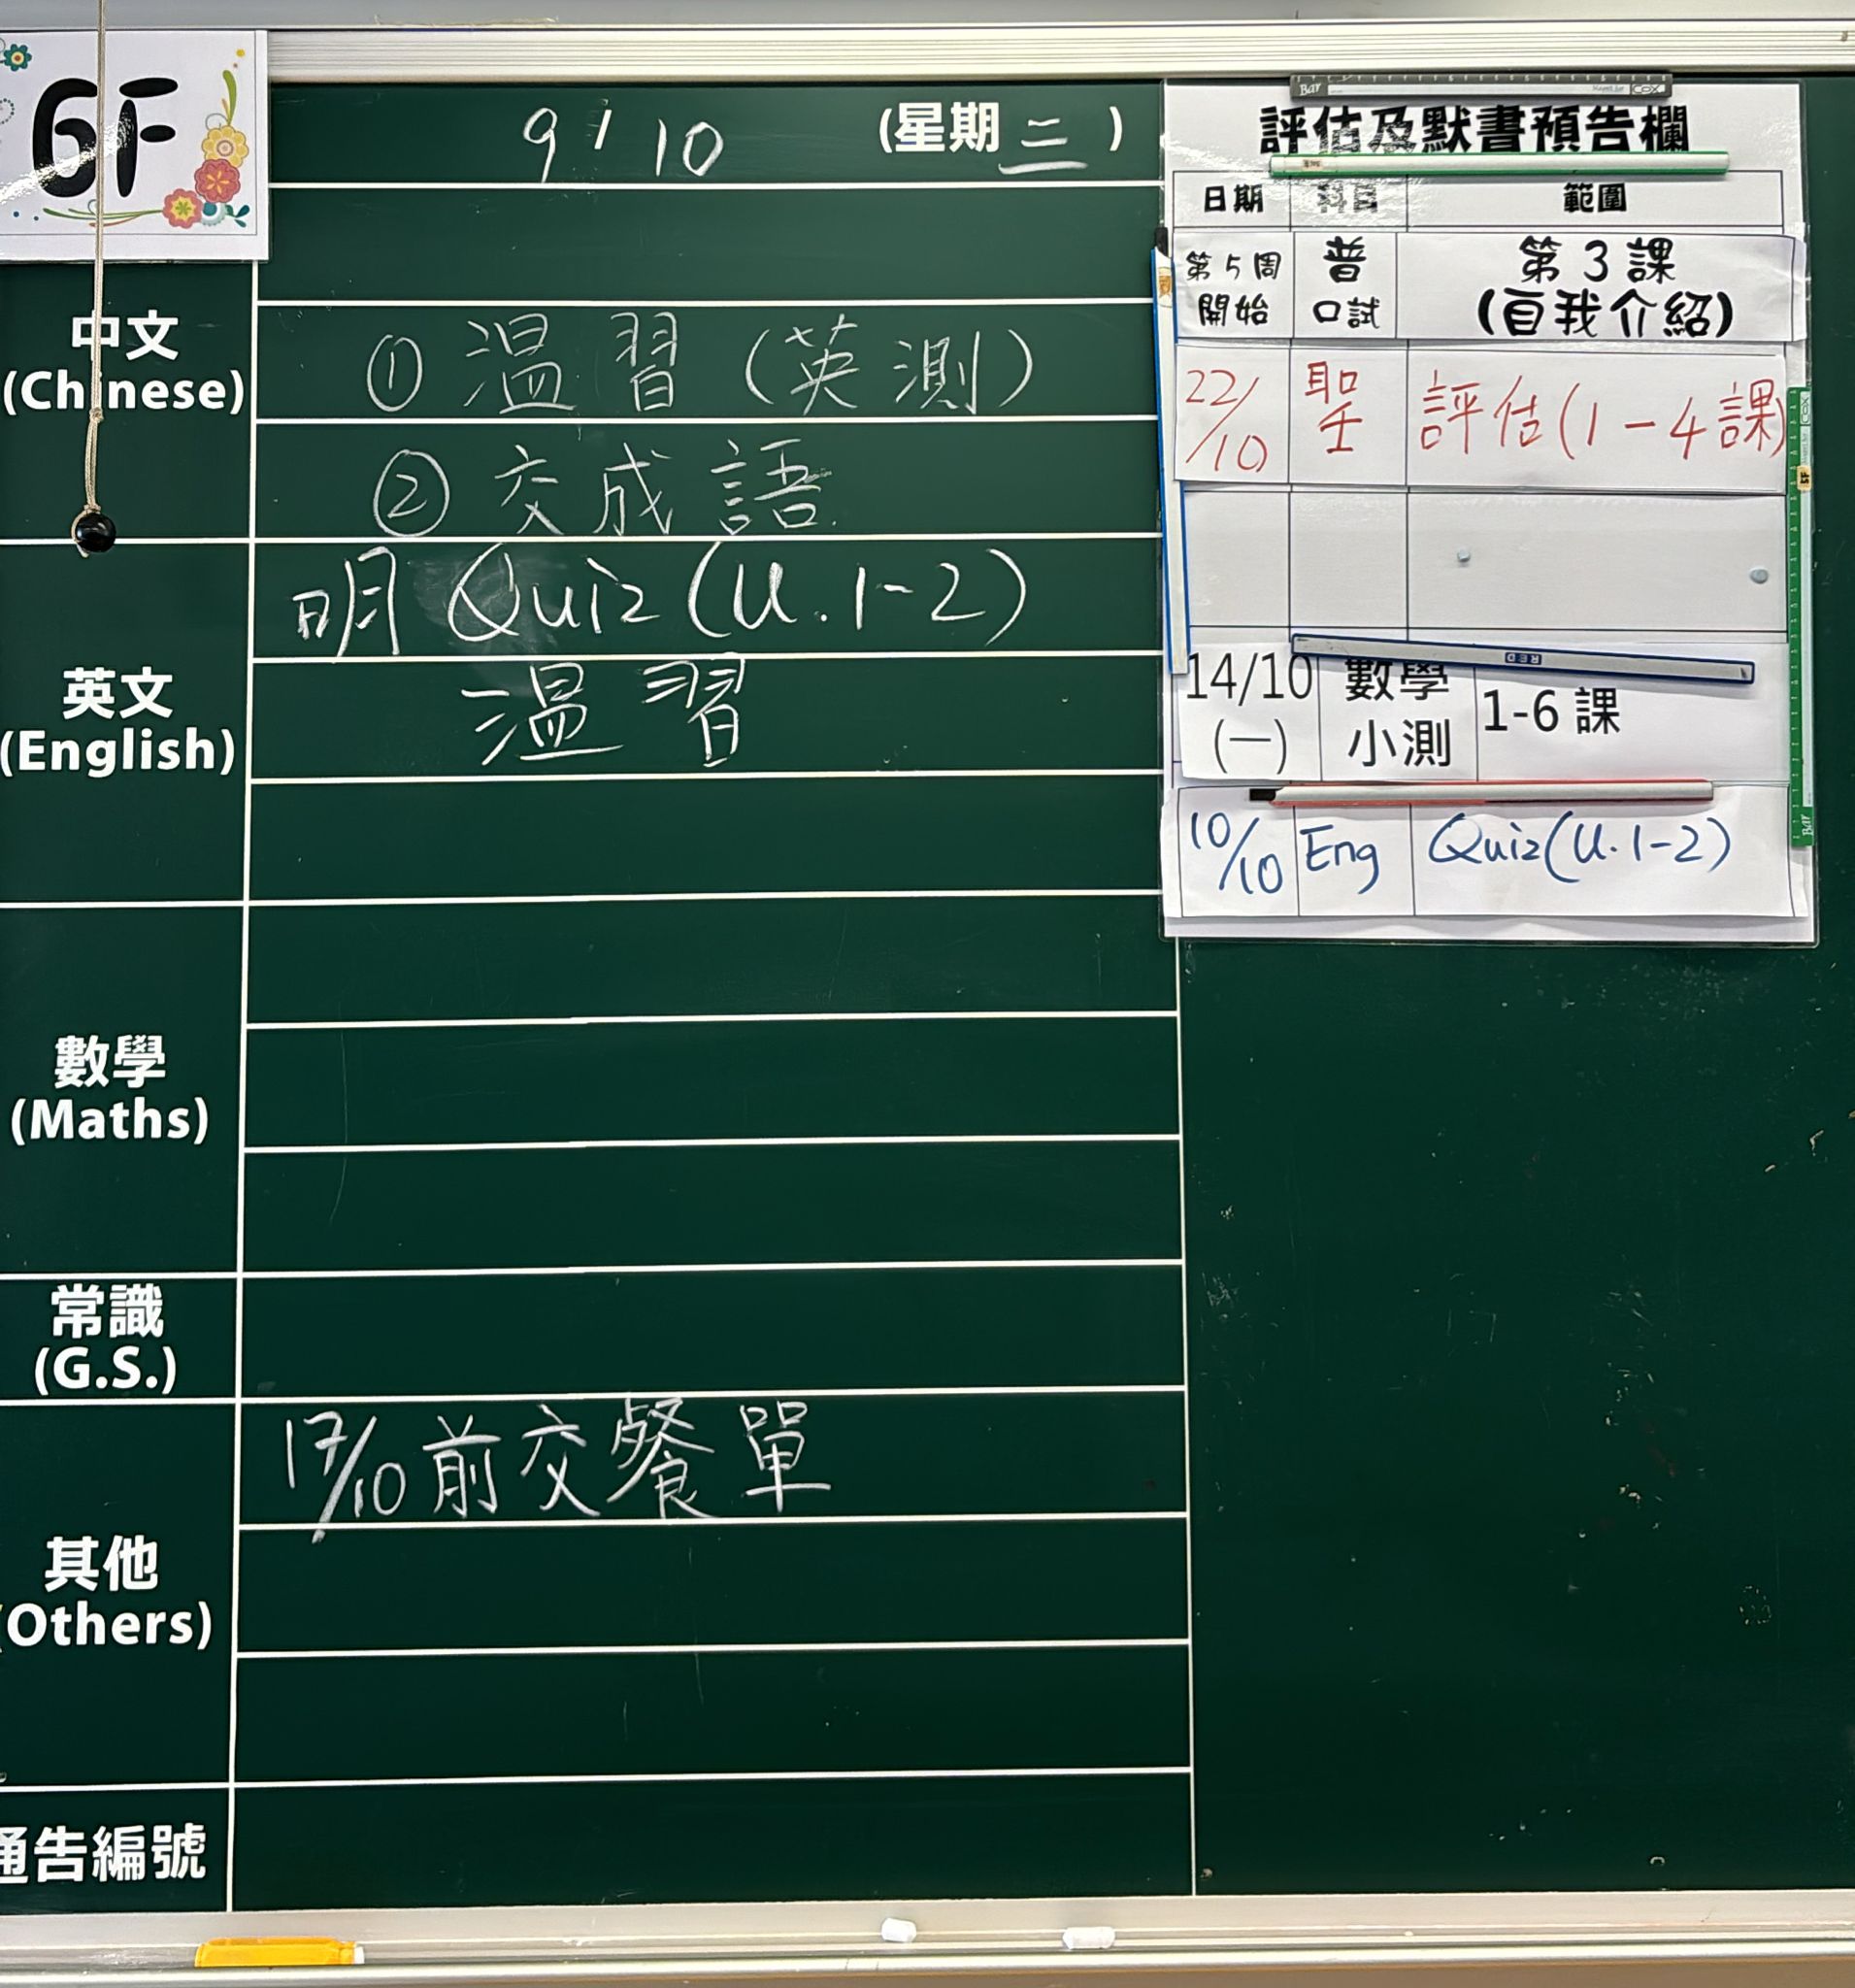 6F
9/10 (星期三)
中文
(Chinese)
① 温習(英測)
② 交成語
英文
(English)
明 Quiz (U.1-2)
温習
數學
(Maths)
常識
(G.S.)
其他
(Others)
17/10 前交餐單
通告編號
評估及默書預告欄
日期 科目 範圍
第5周開始 普口試 第3課(自我介紹)
22/10 聖 評估(1-4課)
14/10(一) 數學小測 1-6課
10/10 Eng Quiz(U.1-2)